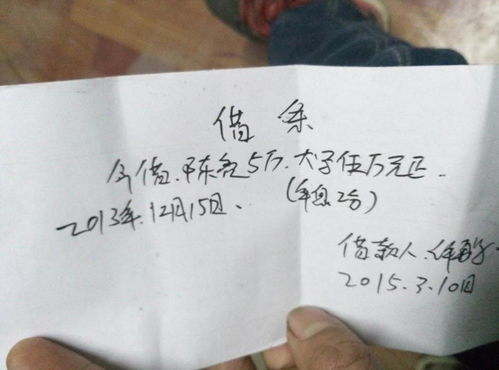 借条
今借.陈亮5万.大字伍万元正.
2013年.12月15日、(年息2分)
借款人.
2015.3.10日